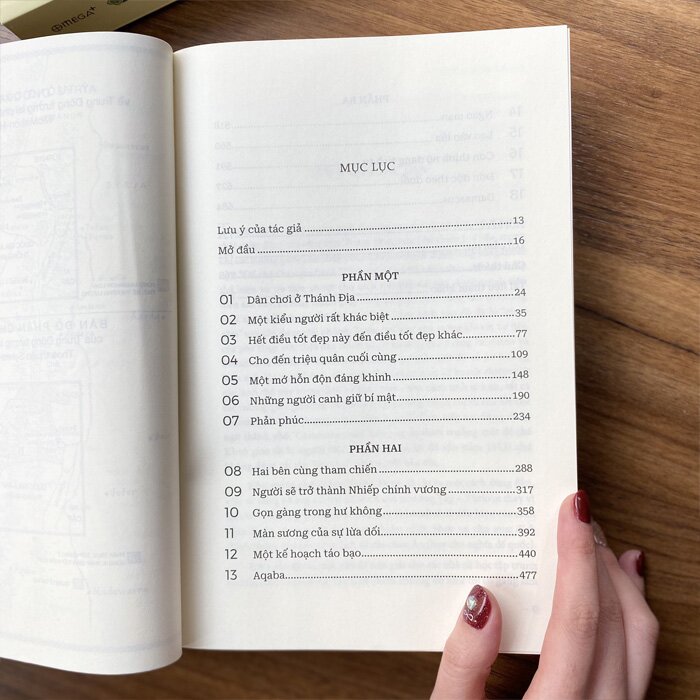 OMEGA+
MỤC LỤC
Lưu ý của tác giả 13
Mở đầu 16
PHẦN MỘT
01 Dân chơi ở Thánh Địa 24
02 Một kiểu người rất khác biệt 35
03 Hết điều tốt đẹp này đến điều tốt đẹp khác 77
04 Cho đến triệu quân cuối cùng 109
05 Một mớ hỗn độn đáng khinh 148
06 Những người canh giữ bí mật 190
07 Phản phúc 234
PHẦN HAI
08 Hai bên cùng tham chiến 288
09 Người sẽ trở thành Nhiếp chính vương 317
10 Gọn gàng trong hư không 358
11 Màn sương của sự lừa dối 392
12 Một kế hoạch táo bạo 440
13 Aqaba 477